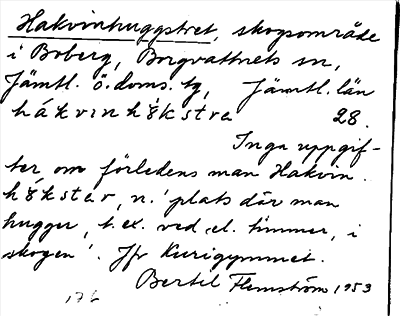 Hakvinhuggstret, skogsområde
i Boberg, Borgvattnets sn,
Jämtl. ö. doms. tg, Jämtl. län
hákvinhɵ̀kstra 28.
Inga uppgif-
ter om förledens man Hakvin.
hɵ̀kstər, n. 'plats där man
hugger, t. ex. ved el. timmer, i
skogen'. Jfr Kurigymmet.
Bertil Flemström 1953
176